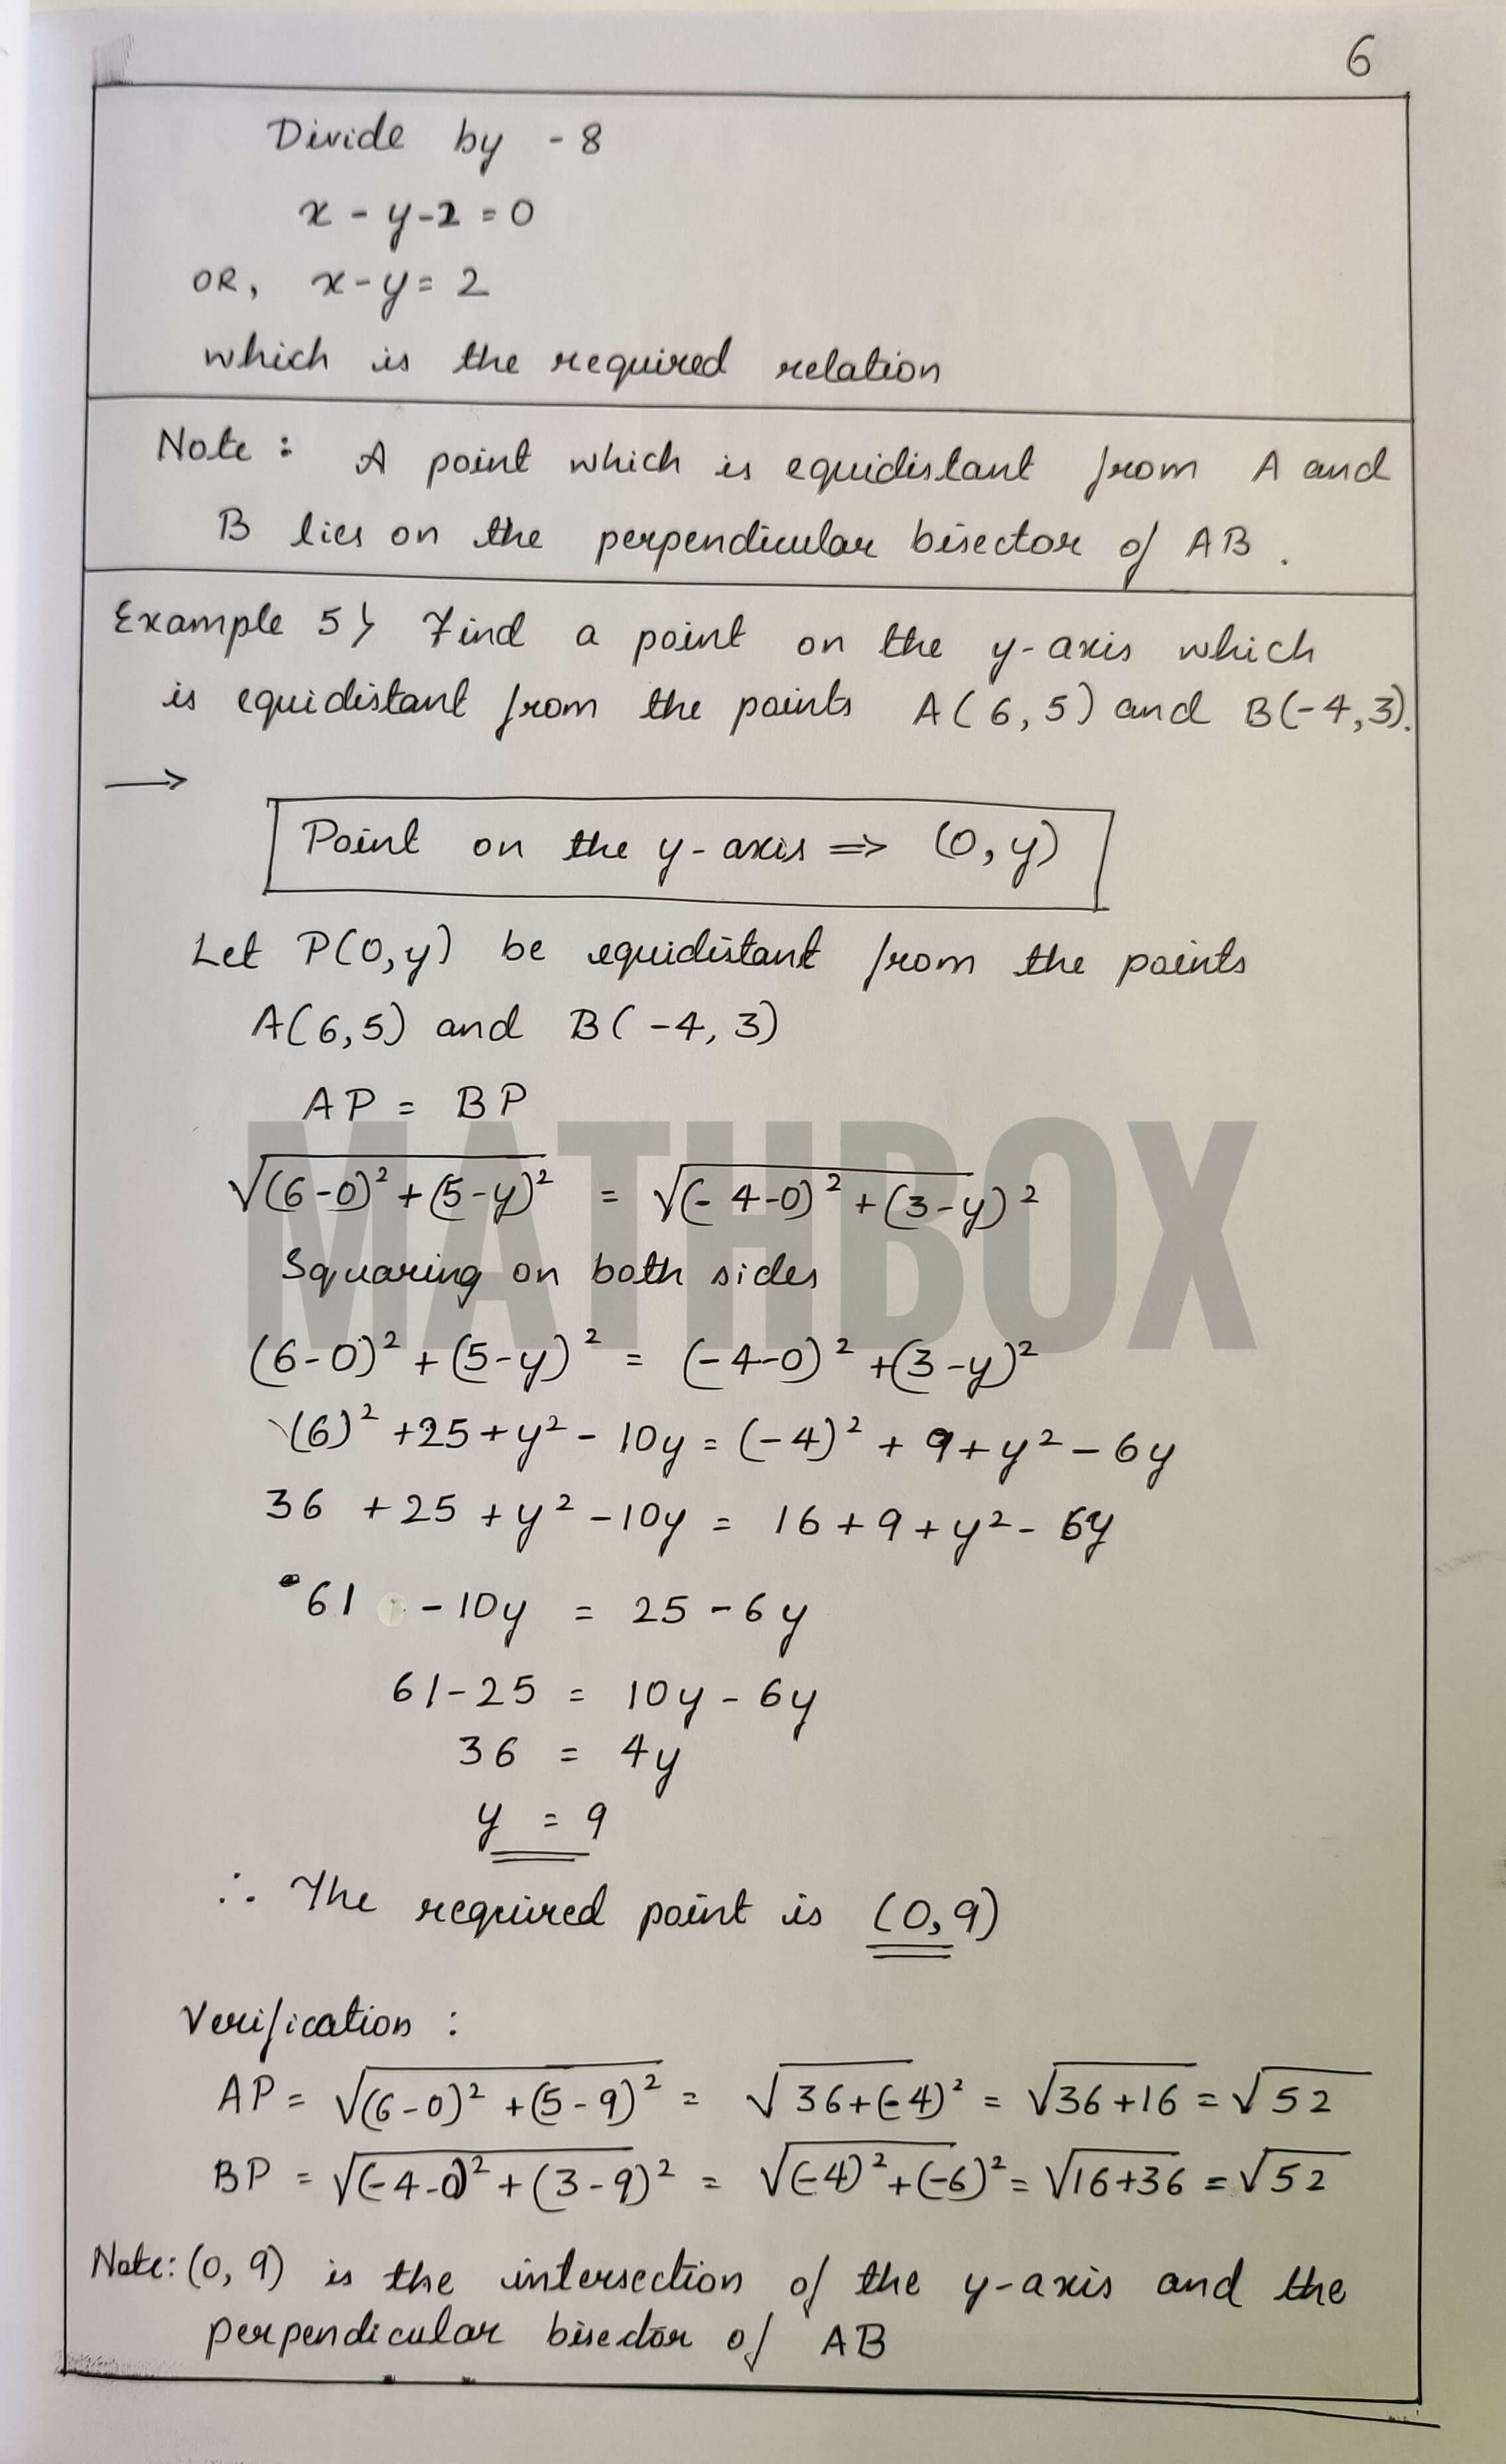 6
Divide by -8
x - y - 2 = 0
OR, x - y = 2
which is the required relation
Note : A point which is equidistant from A and
B lies on the perpendicular bisector of AB .
Example 5) Find a point on the y-axis which
is equidistant from the points A(6,5) and B(-4,3).
→
Point on the y-axis ⇒ (0,y)
Let P(0,y) be equidistant from the points
A(6,5) and B(-4,3)
AP = BP
√(6-0)² + (5-y)² = √(-4-0)² + (3-y)²
MATHBOX
Squaring on both sides
(6-0)² + (5-y)² = (-4-0)² + (3-y)²
(6)² + 25 + y² - 10y = (-4)² + 9 + y² - 6y
36 + 25 + y² - 10y = 16 + 9 + y² - 6y
61 - 10y = 25 - 6y
61 - 25 = 10y - 6y
36 = 4y
y = 9
∴ The required point is (0,9)
Verification :
AP = √(6-0)² + (5-9)² = √36+(-4)² = √36+16 = √52
BP = √(-4-0)² + (3-9)² = √(-4)²+(-6)² = √16+36 = √52
Note: (0,9) is the intersection of the y-axis and the
perpendicular bisector of AB